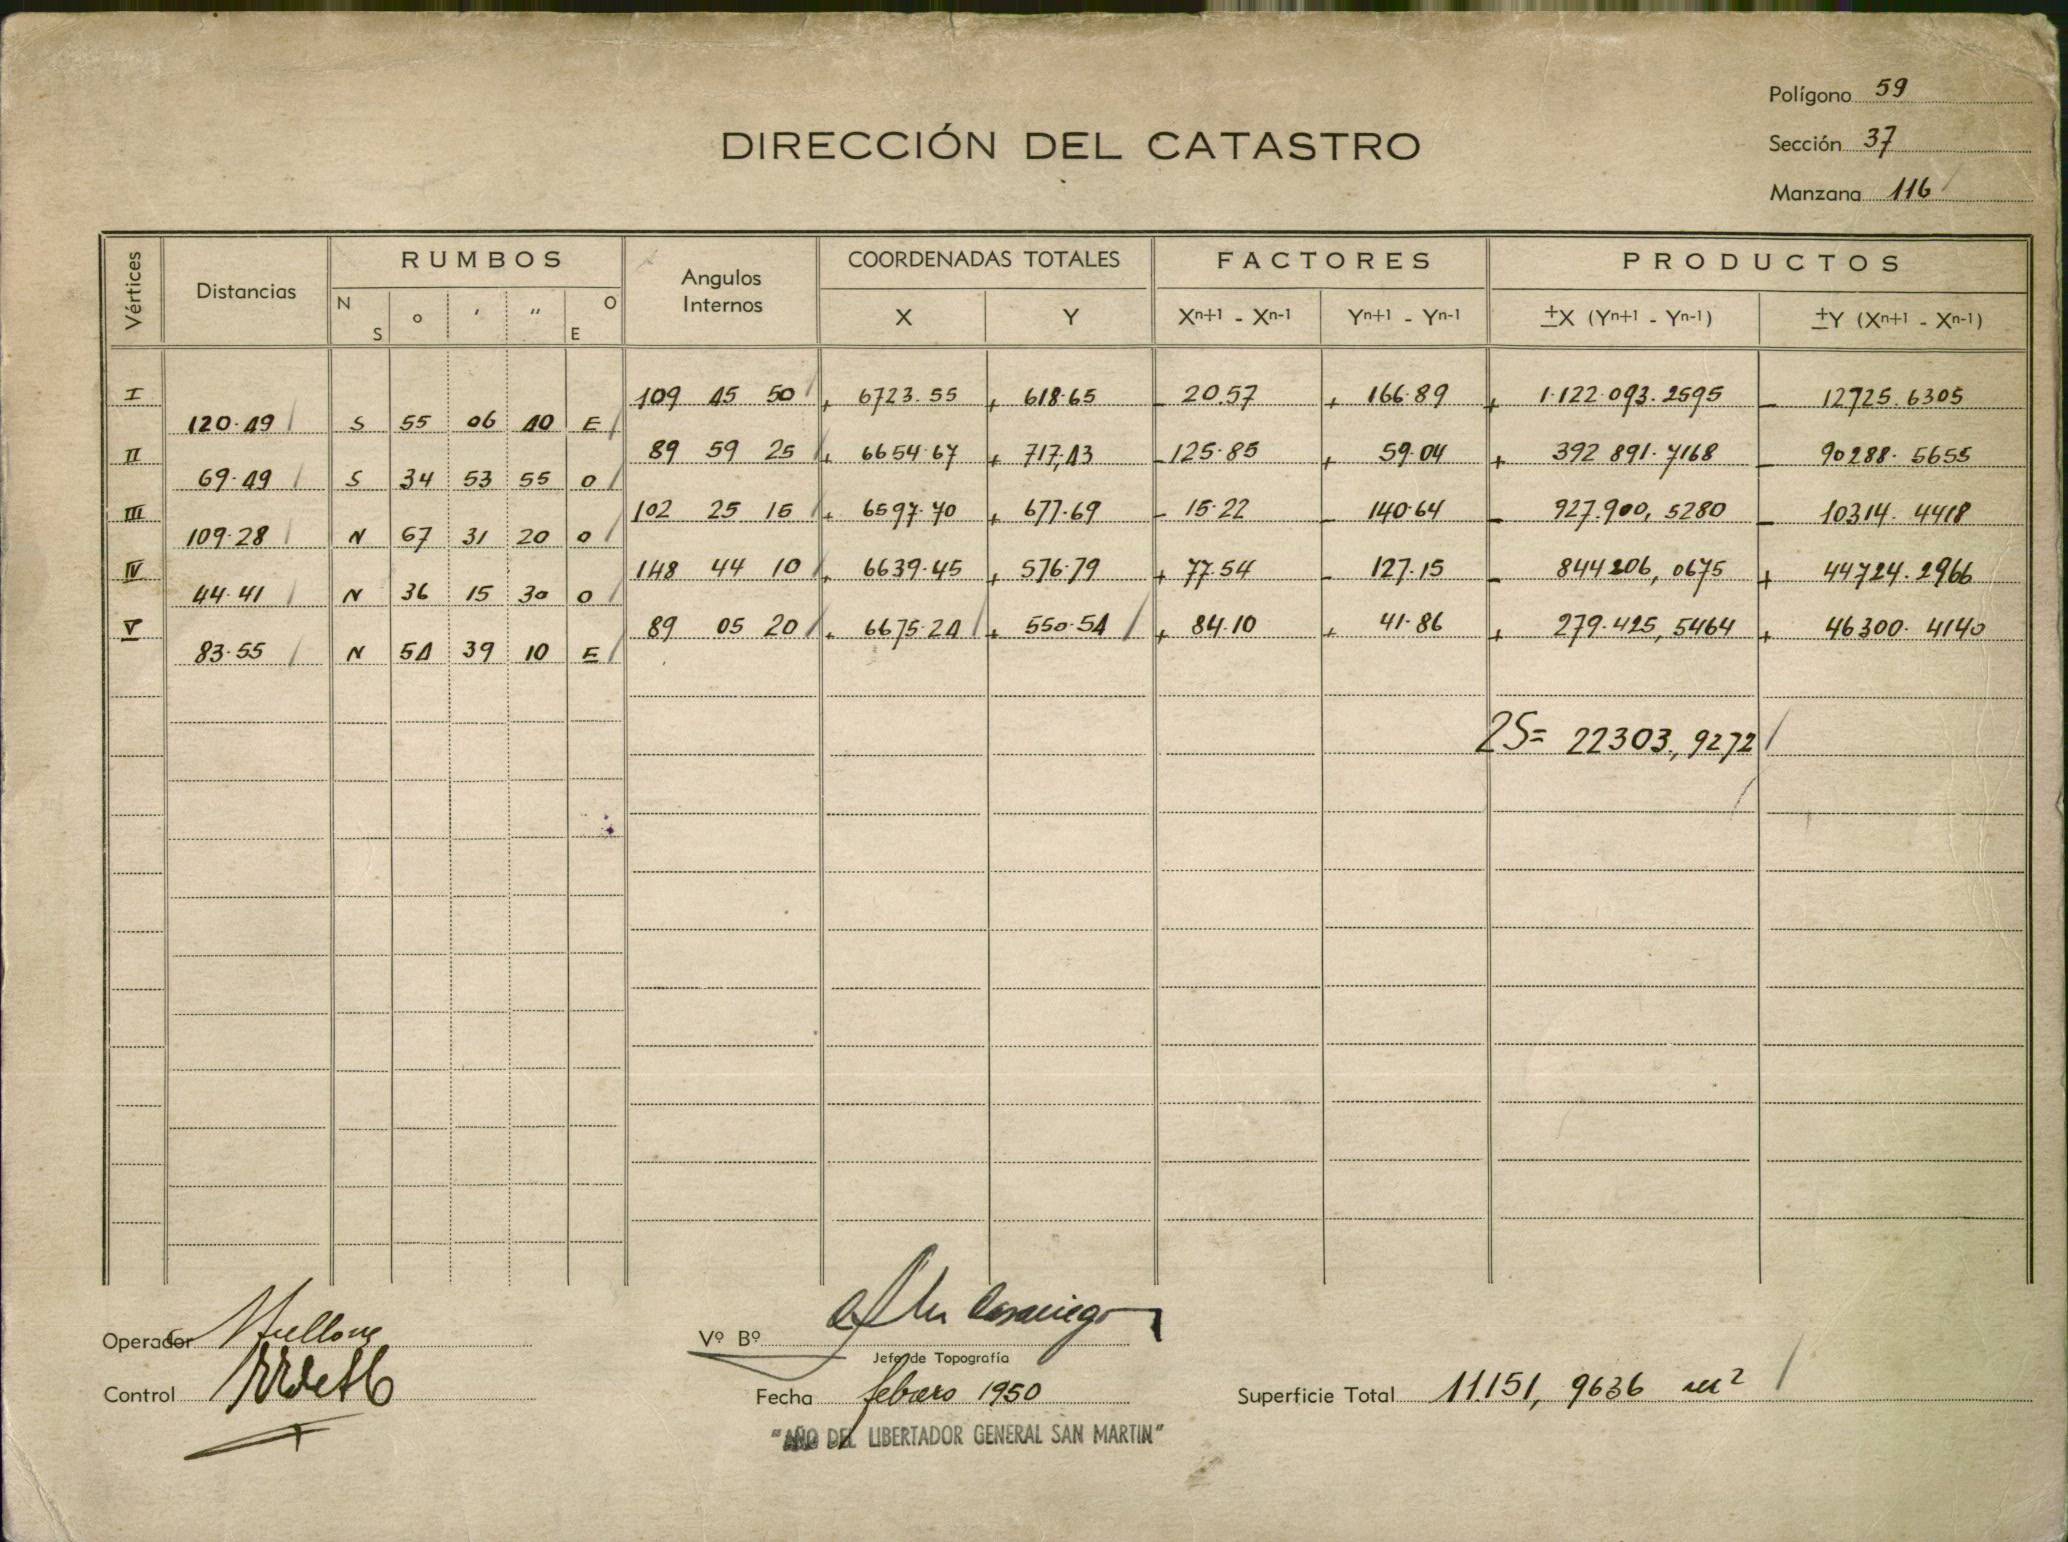 Polígono 59
DIRECCIÓN DEL CATASTRO
Sección 37
Manzana 116
Vértices Distancias RUMBOS Angulos Internos COORDENADAS TOTALES FACTORES PRODUCTOS
N S o ' " O E X Y Xn+1 - Xn-1 Yn+1 - Yn-1 ±X (Yn+1 - Yn-1) ±Y (Xn+1 - Xn-1)
I 109 45 50 + 6723.55 + 618.65 - 20.57 + 166.89 + 1.122.093.2595 - 12725.6305
120.49 S 55 06 40 E
II 89 59 25 + 6654.67 + 717,43 - 125.85 + 59.04 + 392 891.7168 - 90288.5655
69.49 S 34 53 55 O
III 102 25 15 + 6597.70 + 677.69 - 15.22 - 140.64 - 927.900,5280 - 10314.4418
109.28 N 67 31 20 O
IV 148 44 10 + 6639.45 + 576.79 + 77.54 - 127.15 - 844206,0675 + 44724.2966
44.41 N 36 15 30 O
V 89 05 20 + 6675.24 + 550.54 + 84.10 + 41.86 + 279.425,5464 + 46300.4140
83.55 N 54 39 10 E
2S= 22303,9272
Operador
Vº Bº
Jefe de Topografía
Control
Fecha febrero 1950
Superficie Total 11.151,9636 m²
"AÑO DEL LIBERTADOR GENERAL SAN MARTIN"